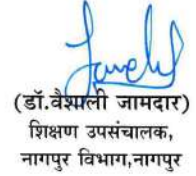 (डॉ.वैशाली जामदार)
शिक्षण उपसंचालक,
नागपुर विभाग,नागपुर